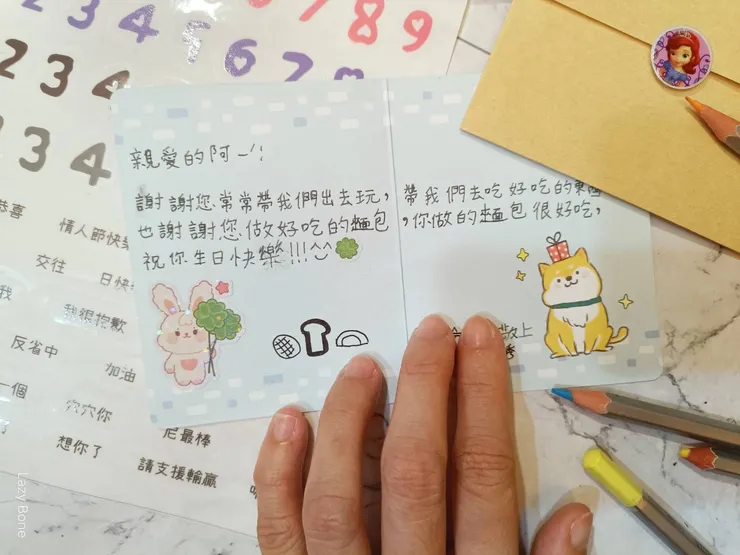 2 3 4
7 8 9
2 3 4
5 6 7
3 4
親愛的阿一ㄚˊ:
謝謝您常常帶我們出去玩,帶我們去吃好吃的東西
也謝謝您做好吃的麵包,你做的麵包很好吃,
祝你生日快樂!!!^^
敬上
恭喜
情人節快樂
交往
日快
我
我很抱歉
反省中
加油
一個
穴穴你
尼最棒
想你了
請支援輸贏
Lazy Bone